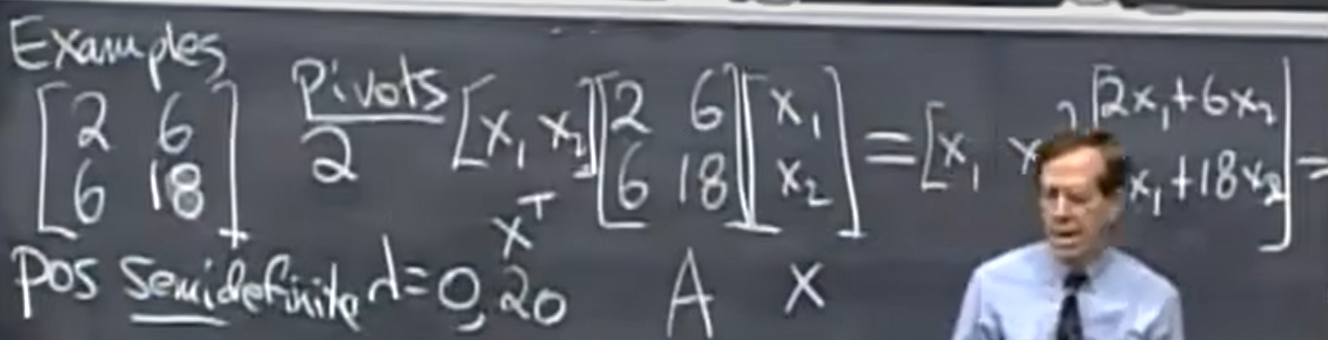 Examples
[2 6
6 18] Pivots
2 [x₁ x₂] [2 6
6 18] [x₁
x₂] = [x₁ x [2x₁+6x₂
x₁+18x₂] =
xᵀ A x
pos semidefinite λ=0,20